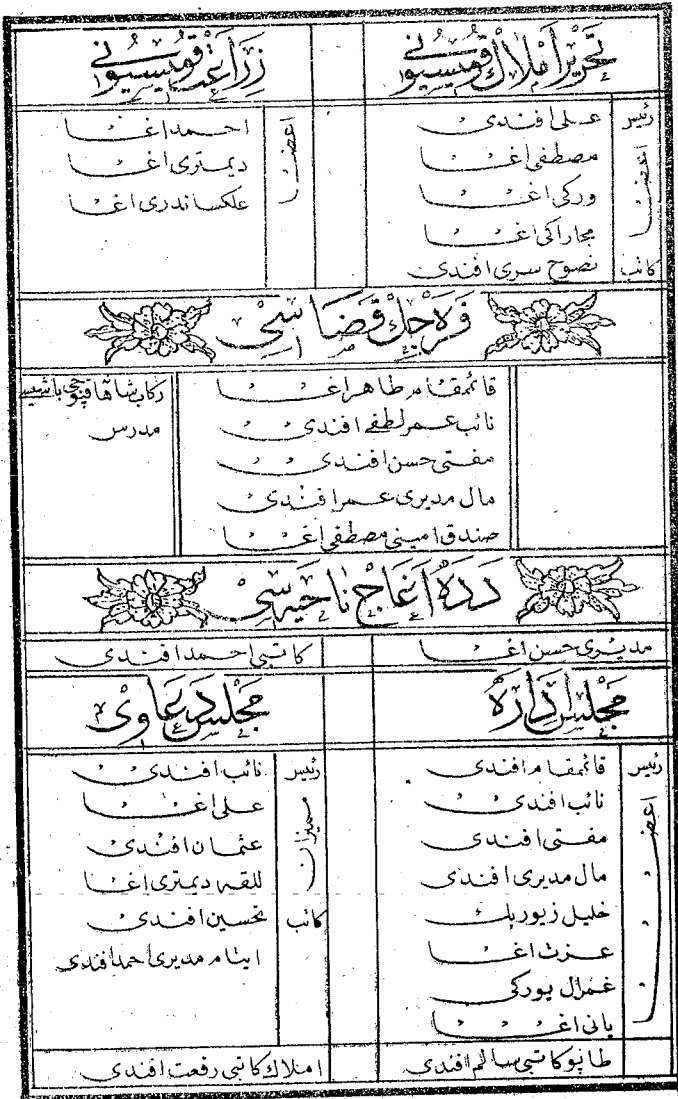 تحریر املاك قومیسیونی
رئیس علی افندی
اعضا مصطفی اغا
ورکی اغا
مجاراکی اغا
كاتب نصوح سری افندی
زراعت قومیسیونی
اعضا احمد اغا
دیمتری اغا
علکساندری اغا
فره جك قضاسی
قائمقام طاهر اغا
نائب عمر لطفی افندی
مفتی حسن افندی
مال مدیری عمر افندی
صندق امینی مصطفی اغا
ركاب شاهانه قپوجی باشیسی
مدرس
دده اغاج ناحیه سی
مدیری حسن اغا
كاتبی احمد افندی
مجلس اداره
رئیس قائمقام افندی
اعضا نائب افندی
مفتی افندی
مال مدیری افندی
خلیل زیور بك
عزت اغا
یورکی
یانی اغا
طاپو كاتبی سالم افندی
مجلس دعاوی
رئیس نائب افندی
ممیزان علی اغا
عثمان افندی
دیمتری اغا
كاتب تحسین افندی
ایتام مدیری احمد افندی
املاك كاتبی رفعت افندی